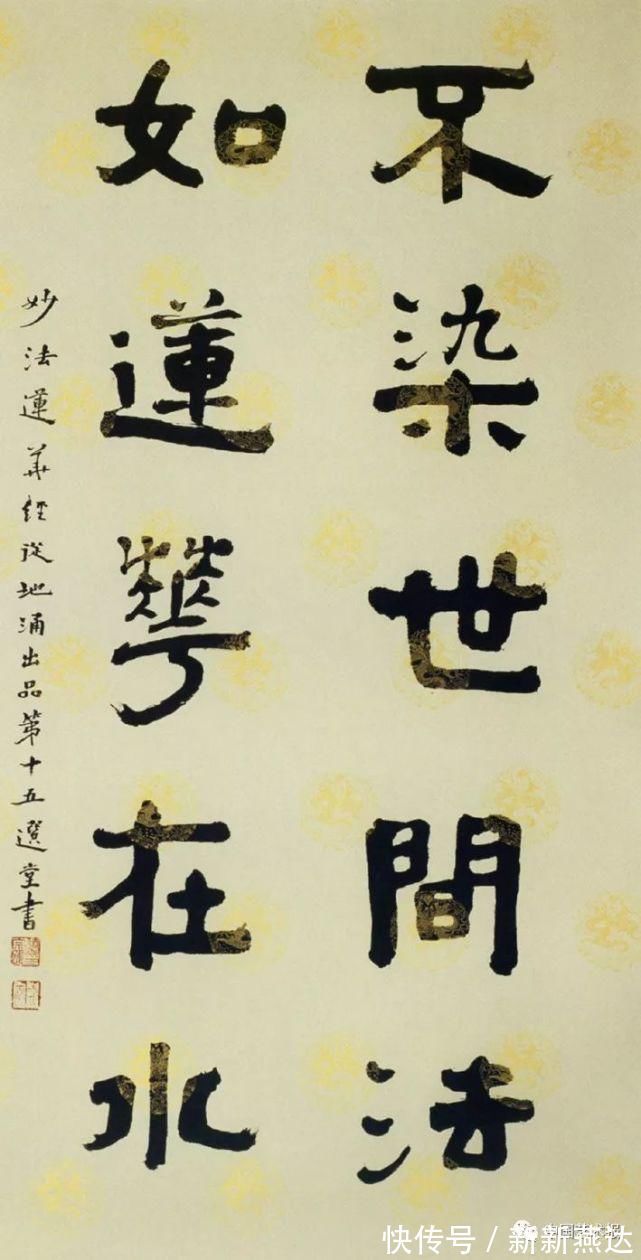 不染世間法
如蓮華在水
妙法蓮華経從地涌出品第十五選堂書
中国艺术报
快传号/新新燕达